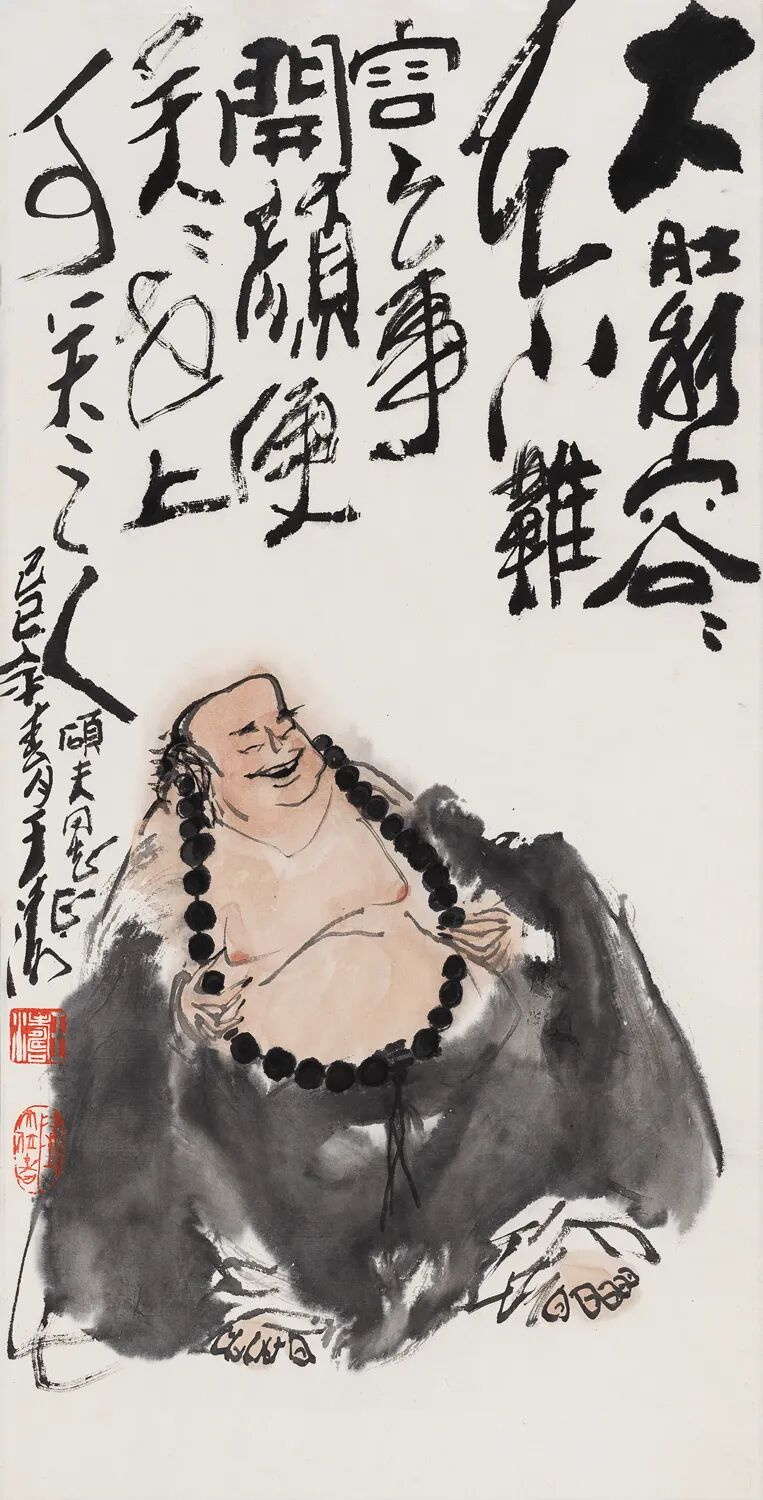 大肚能容〻
天下難
容之事
開顏便
笑〻世上
可笑之人
碩夫同志正
己巳年春月王濤
王濤